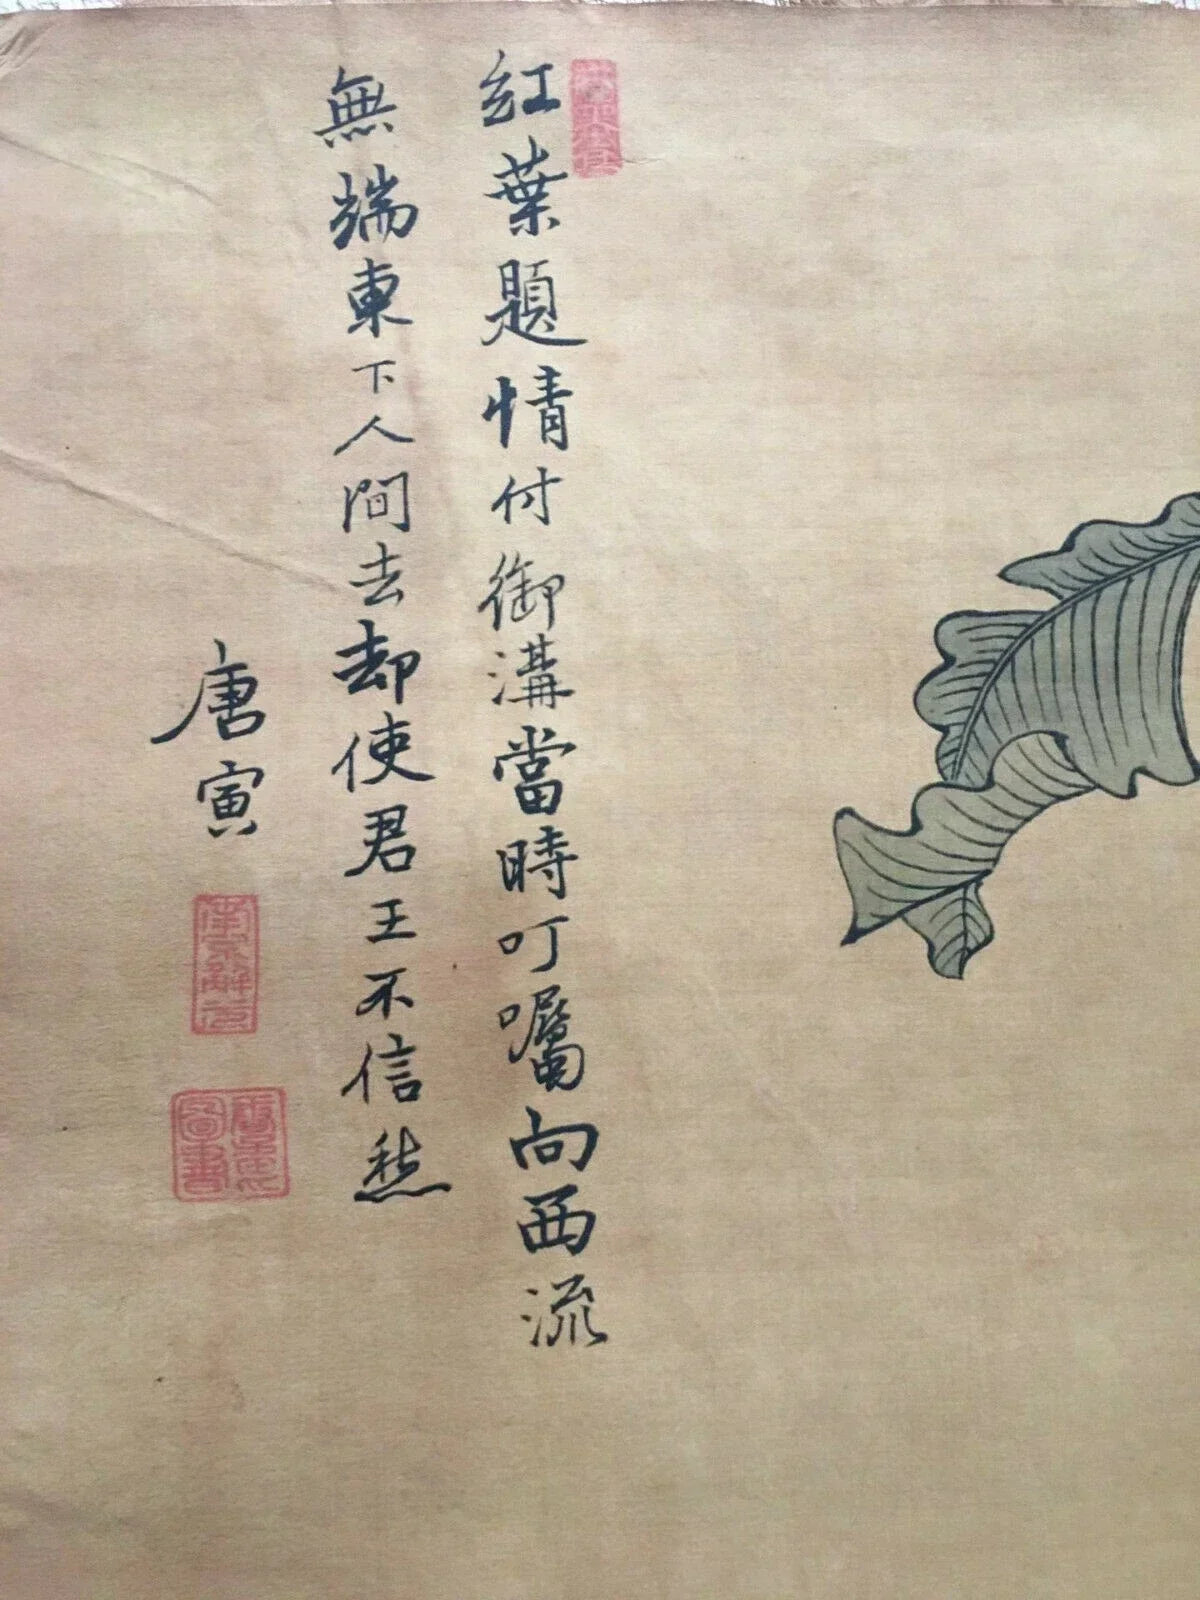 紅葉題情付御溝當時叮囑向西流
無端東下人間去却使君王不信愁
唐寅
南京解元
圖書